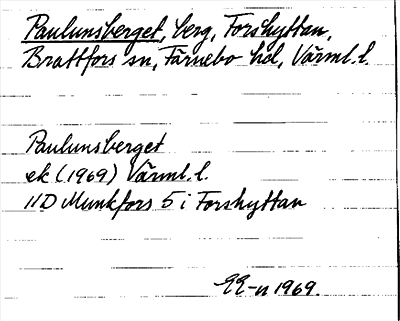 Paulunsberget, berg, Forshyttan,
Brattfors sn, Färnebo hd, Värml. l.
Paulunsberget
ek (1969) Värml. l.
11D Munkfors 5 i Forshyttan
1969.